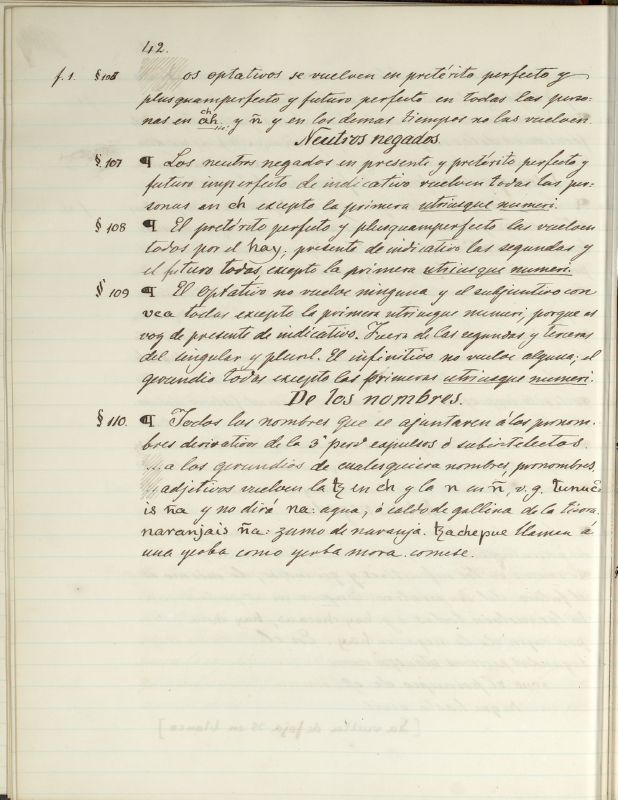 42.
f. 1. § 106 os optativos se vuelven en pretérito perfecto y
plusquamperfecto y futuro perfecto en todas las perso-
nas en ch y ñ y en los demas tiempos no las vuelven.
Neutros negados.
§ 107 ¶ Los neutros negados en presente y pretérito perfecto y
futuro imperfecto de indicativo vuelven todas las per-
sonas en ch excepto la primera utriusque numeri.
§ 108 ¶ El pretérito perfecto y plusquamperfecto las vuelven
todas por el hay; presente de indicativo las segundas y
el futuro todas, excepto la primera utriusque numeri.
§ 109 ¶ El Optativo no vuelve ninguna y el subjuntivo con
vea todas excepto la primera utriusque numeri, porque es
voz de presente de indicativo. Fuera de las segundas y terceras
del singular y plural. El infinitivo no vuelve alguna; el
gerundio todas excepto las primeras utriusque numeri.
De los nombres.
§ 110. ¶ Todos los nombres que se ajuntaren á los pronom-
bres derivativos de la 3ª persª expulsos ó subintelectos
a los gerundios de cualesquiera nombres, pronombres,
adjetivos vuelven la ꜩ en ch y la n en ñ, v. g. tenuc̃
is ña y no dirá na: agua, ó caldo de gallina de la tierra.
naranjais ña: zumo de naranja. ꜩachepue llaman á
una yerba como yerba mora. comese.